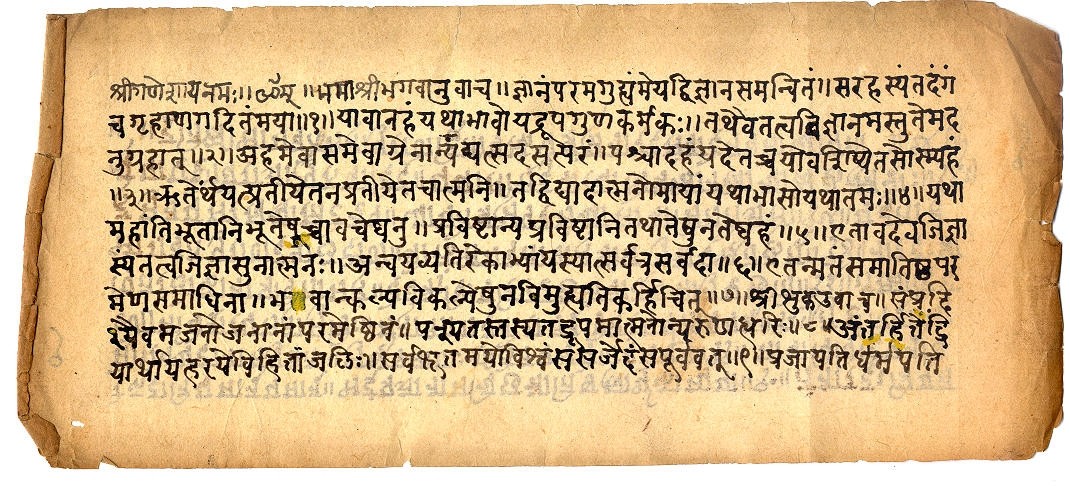 श्रीगणेशायनमः॥ॐम्॥ ॥श्रीभगवानुवाच॥ज्ञानंपरमगुह्यंमेयद्विज्ञानसमन्वितं॥सरहस्यंतदंगं
चगृहाणगदितंमया॥१॥यावानहंयथाभावोयद्रूपगुणकर्मकः॥तथैवतत्वविज्ञानमस्तुतेमद
नुग्रहात्॥२॥अहमेवासमेवाग्रेनान्यद्यत्सदसत्परं॥पश्चादहंयदेतच्चयोवशिष्येतसोस्म्यहं
॥३॥ऋतेर्थंयत्प्रतीयेतनप्रतीयेतचात्मनि॥तद्विद्यादात्मनोमायांयथाभासोयथातमः॥४॥यथा
महांतिभूतानिभूतेषूच्चावचेष्वनु॥प्रविष्टान्यप्रविष्टानितथातेषुनतेष्वहं॥५॥एतावदेवजिज्ञा
स्यंतत्वजिज्ञासुनात्मनः॥अन्वयव्यतिरेकाभ्यांयस्यात्सर्वत्रसर्वदा॥६॥एतन्मतंसमातिष्ठपर
मेणसमाधिना॥भवान्कल्पविकल्पेषुनविमुह्यतिकर्हिचित्॥७॥श्रीशुकउवाच॥संप्रदि
श्यैवमजनोजनानांपरमेष्ठिनं॥पश्यतस्तस्यतद्रूपमात्मनोन्यरुणद्धरिः॥८॥अंतर्हितेंद्रि
यार्थायहरयेविहितांजलिः॥सर्वभूतमयोविश्वंससर्जेदंसपूर्ववत्॥९॥प्रजापतिर्धर्मपति